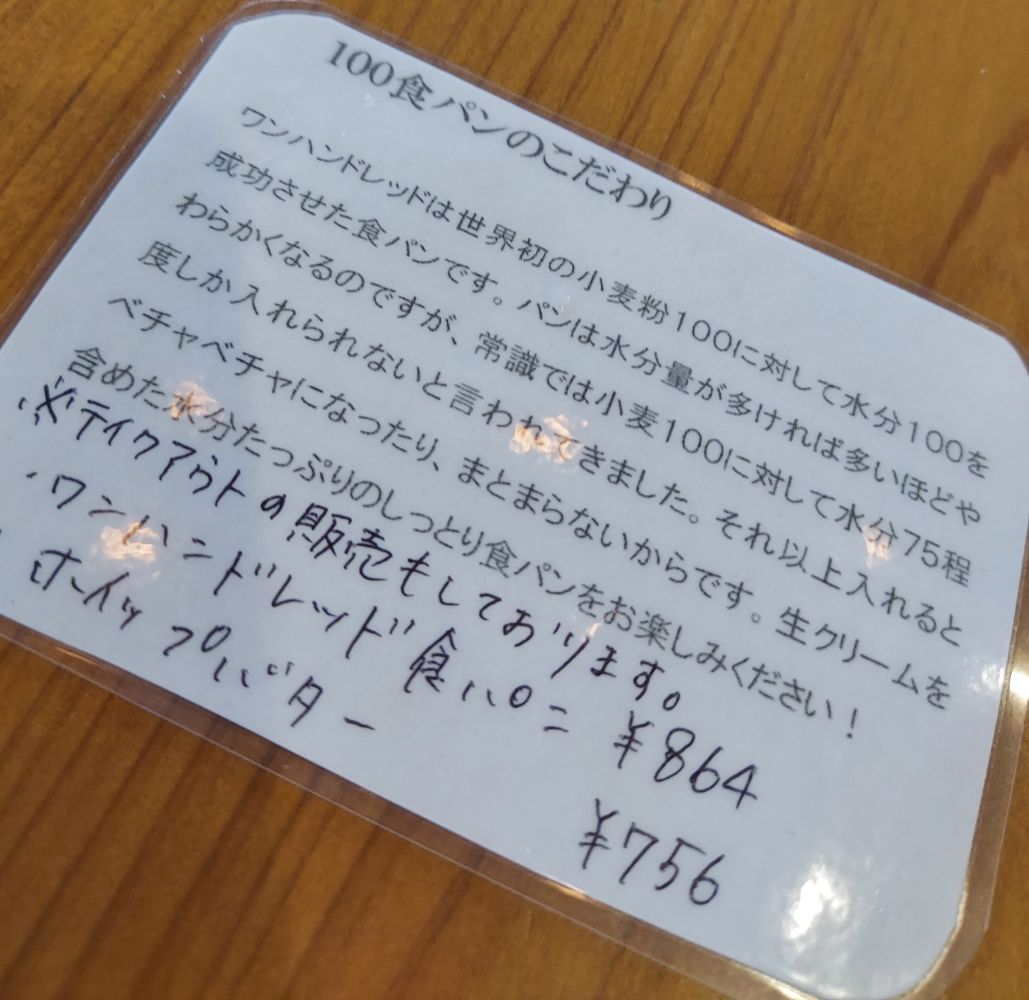 100食パンのこだわり
ワンハンドレッドは世界初の小麦粉100に対して水分100を
成功させた食パンです。パンは水分量が多ければ多いほどや
わらかくなるのですが、常識では小麦100に対して水分75程
度しか入れられないと言われてきました。それ以上入れると
ベチャベチャになったり、まとまらないからです。生クリームを
含めた水分たっぷりのしっとり食パンをお楽しみください！
※テイクアウトの販売もしております。
・ワンハンドレッド食パン ¥864
・ホイップバター ¥756